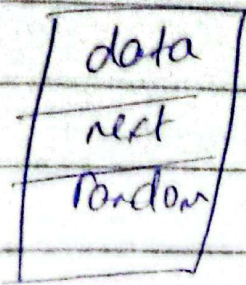 data
next
random